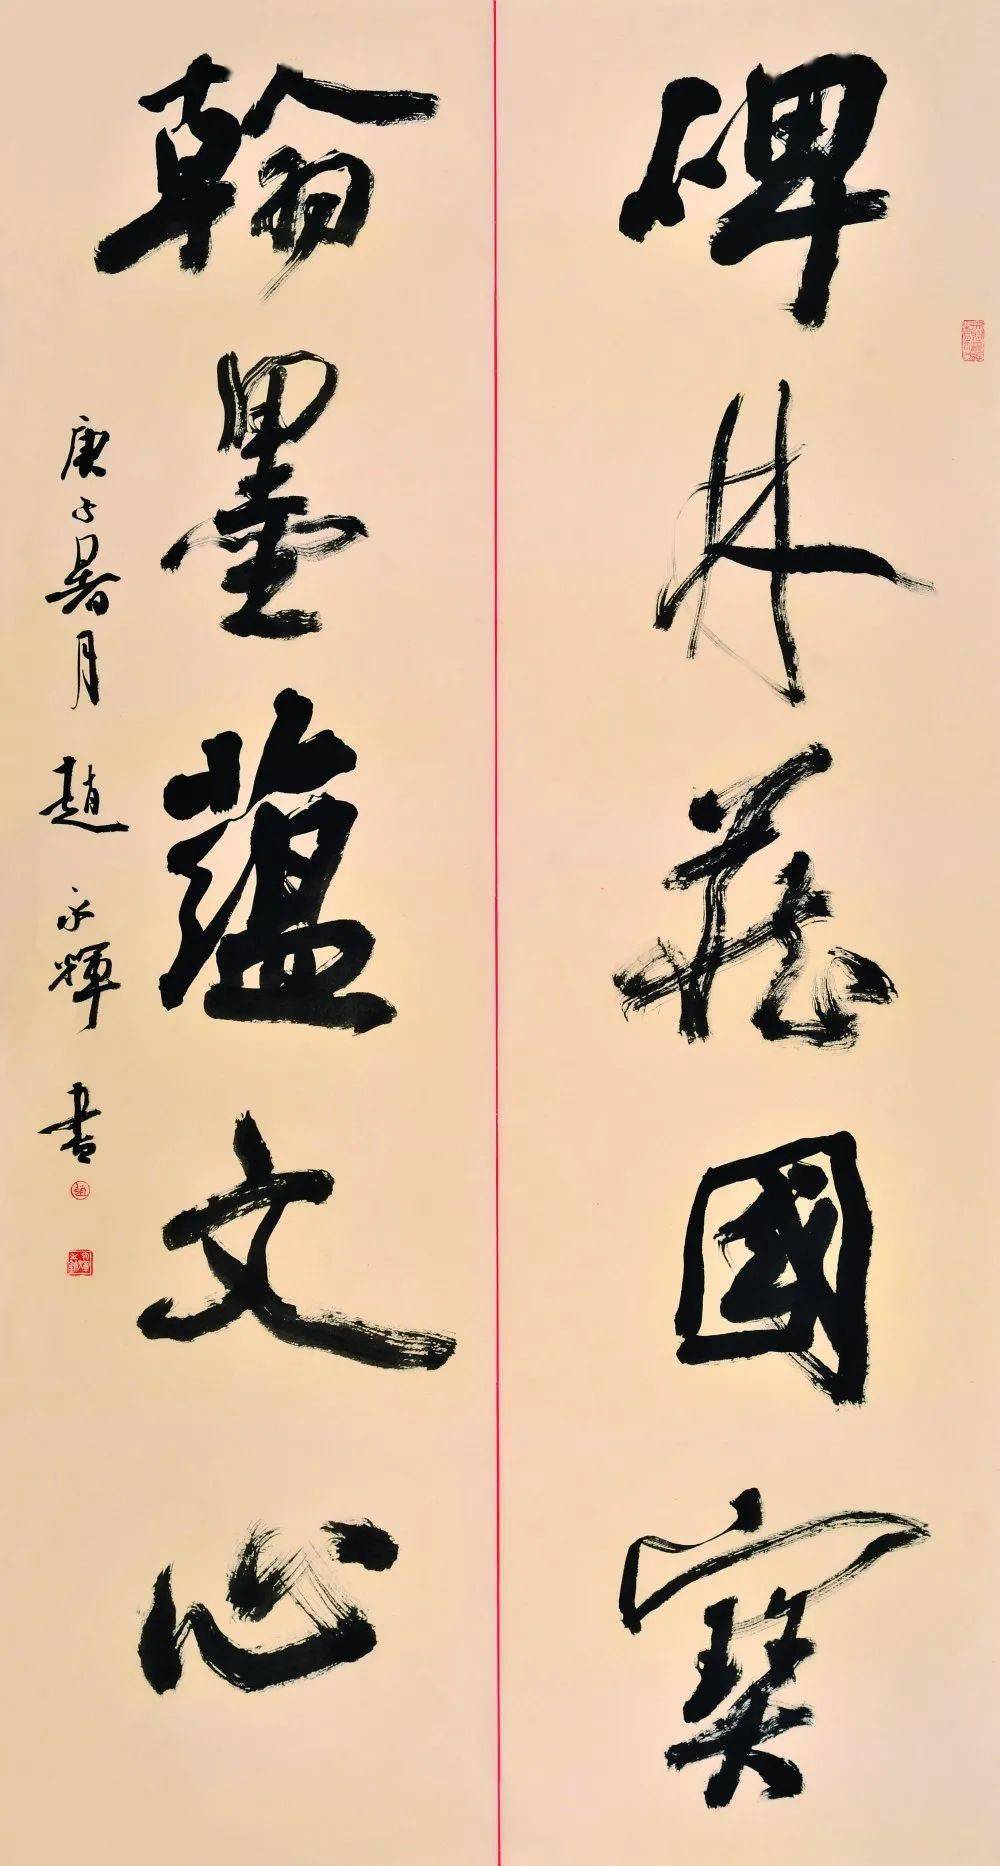 碑林藏國寶
翰墨蘊文心
庚子暑月 趙永輝書